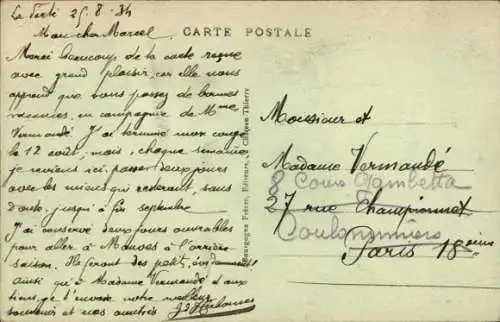 La Ferté 25.8.34
CARTE POSTALE
Mon cher Marcel
Merci beaucoup de ta carte reçue
avec grand plaisir, car elle nous
apprend que vous passez de bonnes
en compagnie de Mme
Vermandé J'ai terminé mon congé
le 12 août, mais, chaque semaine
je reviens ici, passer deux jours
avec les miens qui resteront, sans
doute, jusqu'à fin septembre
J'ai conservé deux jours ouvrables
pour aller à Mauves à l'arrière
saison. Ils feront des petits, évidemment
ainsi qu'à Madame Vermandé et aux
tiens, je t'envoie notre meilleur
souvenir et nos amitiés
Bourgogne Frères, Editeurs, à Château Thierry
Monsieur et
Madame Vermandé
8 Cours Gambetta
27 rue Championnet
Coulommiers
Paris 18eme